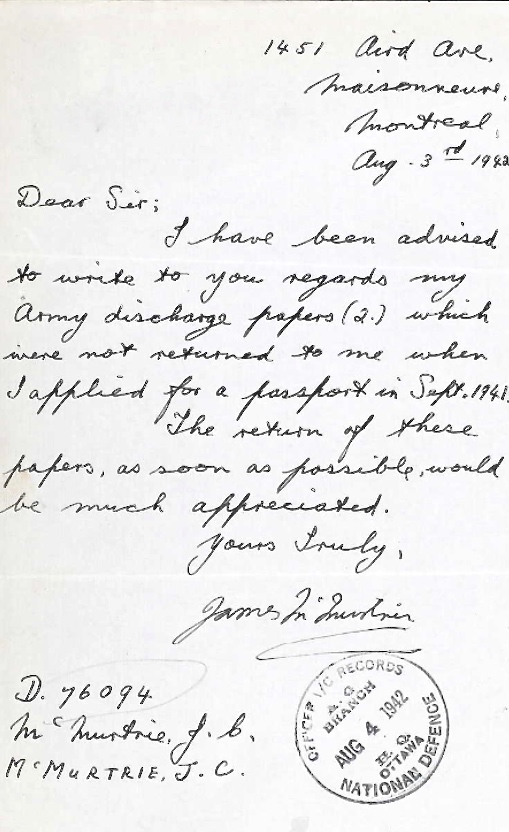 1451 Aird Ave,
Maisonneuve,
Montreal,
Aug. 3rd 1942
Dear Sir;
I have been advised
to write to you regards my
Army discharge papers (2.) which
were not returned to me when
I applied for a passport in Sept. 1941.
The return of these
papers, as soon as possible, would
be much appreciated.
Yours Truly,
James McMurtrie
D. 76094
McMurtrie, J. C.
McMURTRIE, J. C.
OFFICER I/C RECORDS
A. G.
BRANCH
AUG 4 1942
H. Q.
OTTAWA
NATIONAL DEFENCE